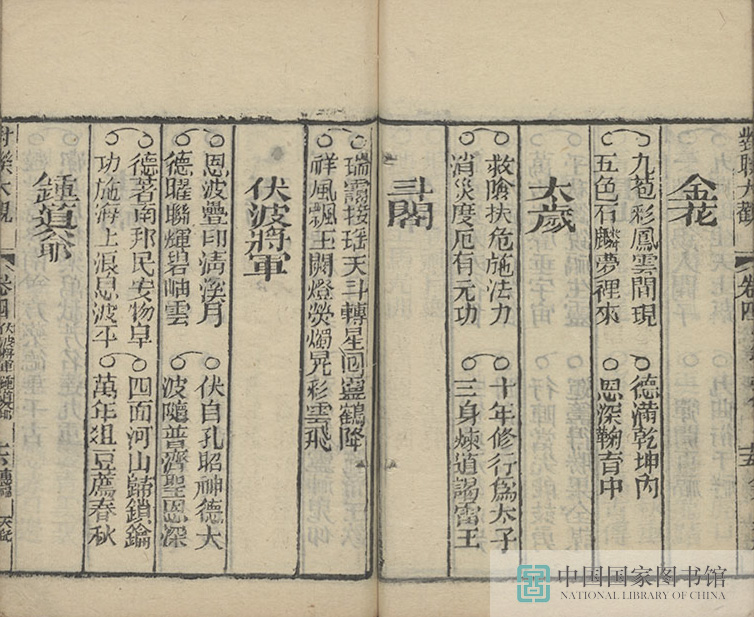 對聯大觀 卷四 十五
金花
九苞彩鳳雲間現
五色石麟夢裡來
德滿乾坤內
恩深鞠育中
太歲
救險扶危施法力
消災度厄有元功
十年修行為太子
三身煉道謁雷王
斗閣
瑞靄接瑤天斗轉星回靈鶴降
祥風飄玉闕燈熒燭晃彩雲飛
伏波將軍
恩波疊印清溪月
德曜聯輝碧岫雲
伏自孔昭神德大
波隨普濟聖恩深
德著南邦民安物阜
功施海上浪息波平
四面河山歸鎖鑰
萬年俎豆薦春秋
鍾道爺
對聯大觀 卷四 伏波將軍 鍾道爺 十六
中国国家图书馆
NATIONAL LIBRARY OF CHINA